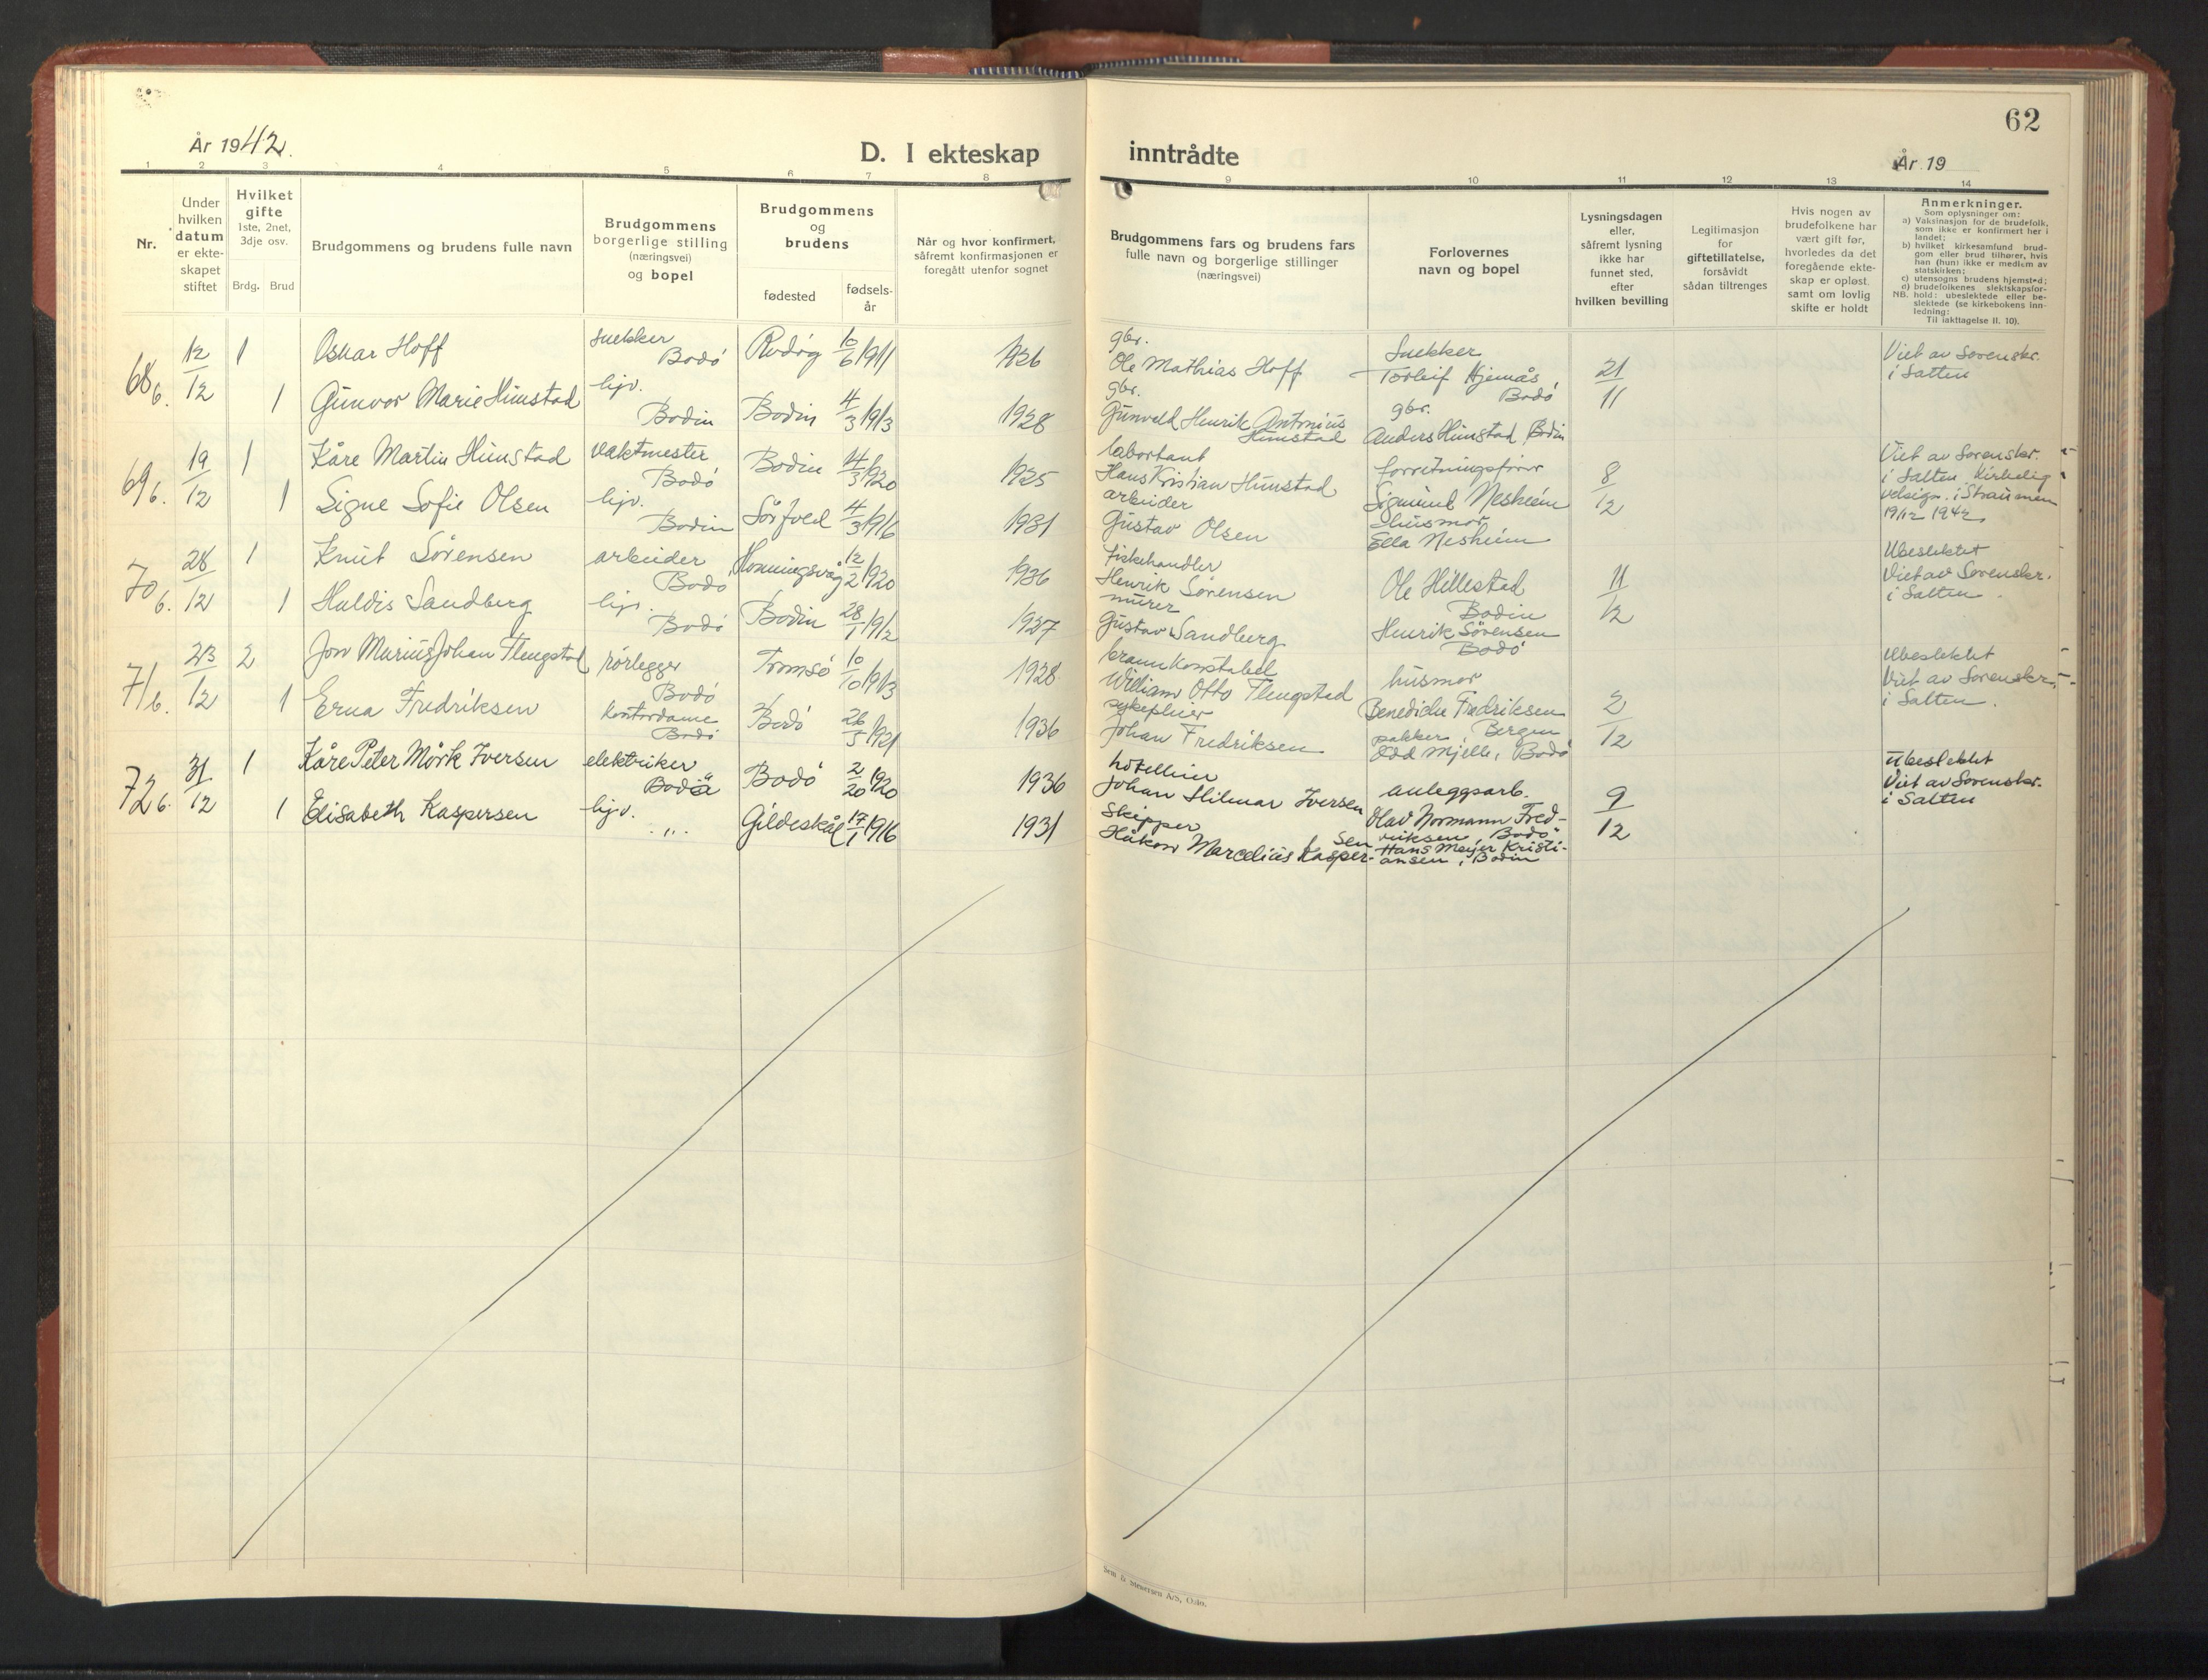 År 1942.
D. I ekteskap
1 2 3 4 5 6 7 8
Nr.
Under hvilken datum er ekteskapet stiftet
Hvilket gifte 1ste, 2net, 3dje osv.
Brdg. Brud
Brudgommens og brudens fulle navn
Brudgommens borgerlige stilling (næringsvei) og bopel
Brudgommens og brudens
fødested
fødselsår
Når og hvor konfirmert, såfremt konfirmasjonen er foregått utenfor sognet
68 6. 12/12 1 Oskar Hoff snekker Bodö Rödöy 10/6 1911 1926
1 Gunvor Marie Hunstad hjv. Bodin Bodin 4/3 1913 1928
69 6. 19/12 1 Kåre Martin Hunstad vaktmester Bodö Bodin 1925
1 Signe Sofie Olsen hjv. Bodin Sörfold 4/3 1916 1931
70 6. 28/12 1 Knut Sörensen arbeider Bodö Honningsvåg 12/2 1920 1936
1 Huldis Sandberg hjv. Bodö Bodin 28/1 1912 1927
71 6. 23/12 2 Jon Marius Johan Flengstad rörlegger Bodö Tromsö 10/10 1913 1928
1 Erna Fredriksen Kontordame Bodö Bodö 1921 1936
72 6. 31/12 1 Kåre Peter Mörk Iversen elektriker Bodö Bodö 2/20 1920 1936
1 Elisabeth Kaspersen hjv. .,,. Gildeskål 17/1 1916 1931
62
inntrådte
År 19
9 10 11 12 13 14
Brudgommens fars og brudens fars fulle navn og borgerlige stillinger (næringsvei)
Forlovernes navn og bopel
Lysningsdagen eller, såfremt lysning ikke har funnet sted, efter hvilken bevilling
Legitimasjon for giftetillatelse, forsåvidt sådan tiltrenges
Hvis nogen av brudefolkene har vært gift før, hvorledes da det foregående ekteskap er opløst. samt om lovlig skifte er holdt
Anmerkninger.
Som oplysninger om:
a) Vaksinasjon for de brudefolk, som ikke er konfirmert her i landet;
b) hvilket kirkesamfund brudgom eller brud tilhører, hvis han (hun) ikke er medlem av statskirken;
c) utensogns brudens hjemsted;
d) brudefolkenes slektskapsforhold: ubeslektede eller beslektede (se kirkebokens innledning:
NB.
Til iakttagelse II. 10).
gbr.
Ole Mathias Hoff
Snekker
Torleif Hjemås, Bodö
21/11
Viet av Sorenskr.
i Salten
gbr.
Gunvald Henrik Antonius Hunstad
gbr.
Anders Hunstad Bodin
labortant
Hans Kristian Hunstad
forretningsförer
Sigmund Nesheim
8/12
Viet av Sorenskr.
i Salten. Kirkelig
velsign. i Straumen
19/12 1942
arbeider
Gustav Olsen
husmor
Ella Nesheim
Fiskehandler
Henrik Sörensen
Ole Hillestad
Bodin
11/12
Ubeslektet
Viet av Sorenskr.
i Salten
murer
Gustav Sandberg
Henrik Sörensen
Bodö
brannkonstabel
William Otto Flengstad
husmor
Benedicte Fredriksen
Bergen
2/12
Ubeslektet
Viet av Sorenskr.
i Salten.
sykepleier
Johan Fredriksen
pakker
Odd Mjelle, Bodö
hotelleier
Johan Hilmar Iversen
anleggsarb.
Olav Normann Fred-
riksen, Bodö
9/12
Ubeslektet
Viet av Sorenskr.
i Salten
Skipper
Håkon Marcelius Kasper-
sen
Hans Meyer Kristi-
ansen, Bodin
Sem & Stenersen A/S, Oslo.